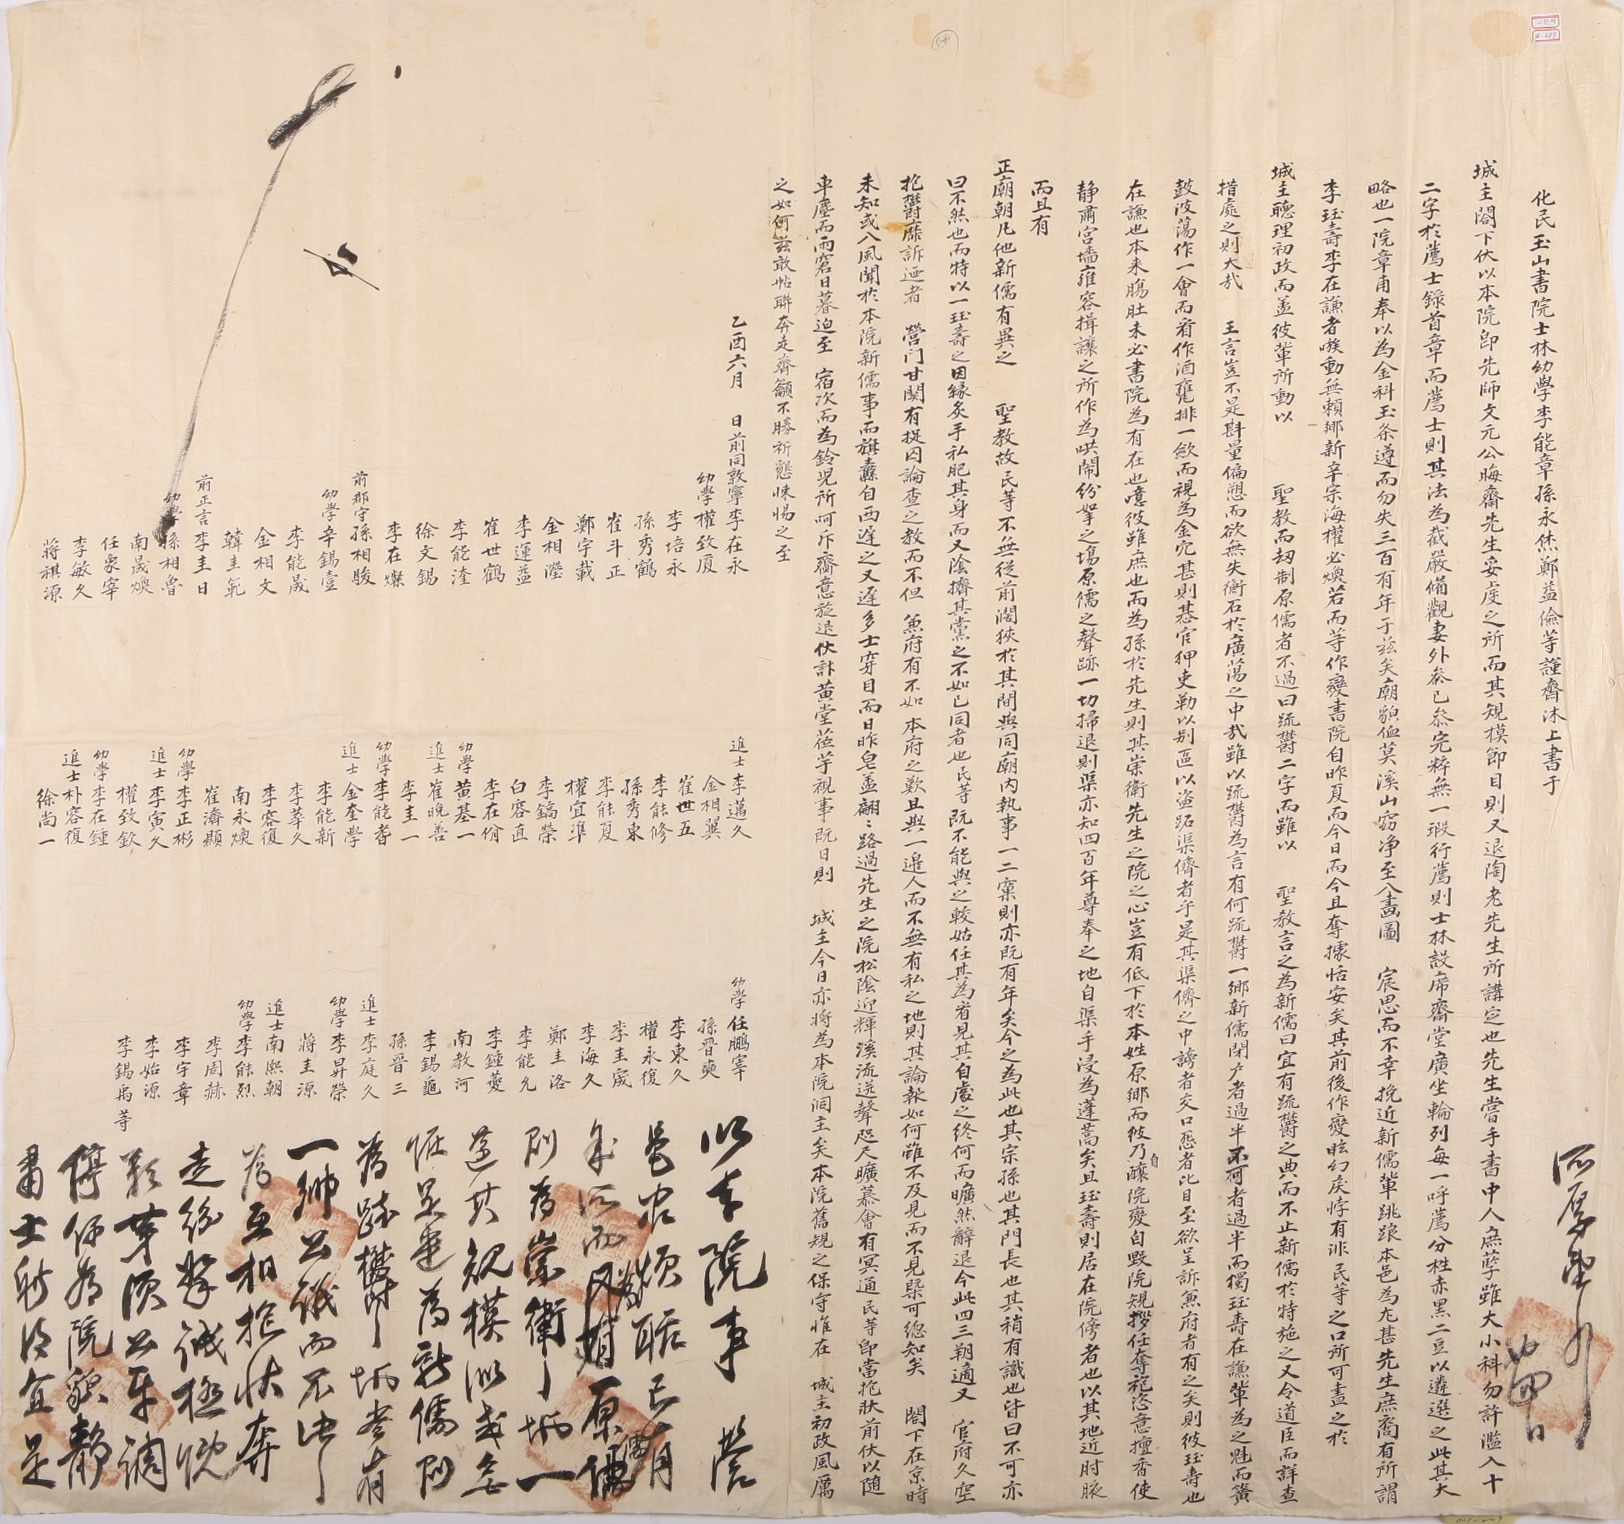 化民玉山書院士林幼學李能章孫永烋鄭益儉等謹齋沐上書于
城主閤下伏以本院卽先師文元公晦齋先生妥虔之所而其規模節目則又退陶老先生所講定也先生嘗手書中人庶孼雖大小科勿許濫入十
二字於薦士錄首章而薦士則其法爲截嚴備觀妻外叅已叅完粹無一瑕行薦則士林設席齋堂廣坐輪列每一呼薦分牲赤黑二豆以遴選之此其大
略也一院章甫奉以爲金科玉条遵而勿失三百有年于玆矣廟貌侐莫溪山窈净至入畵圖 宸思而不幸挽近新儒輩跳踉本邑爲尤甚先生庶裔有所謂
李珏壽李在謙者嗾動無賴鄕新辛宗海權必煥若而等作變書院自昨夏而今日而今且奪據恬安矣其前後作變眩幻戾悖有非民等之口所可盡之於
城主聽理初政而盖彼輩所動以 聖敎而刼制原儒者不過曰疏欝二字而雖以 聖敎言之爲新儒曰宜有疏欝之典而不止新儒於特施之又令道臣而詳查
措處之則大哉 王言豈不是斟量偏愬而欲無失衡石於廣蕩之中哉雖以疏欝爲言有何疏欝一鄕新儒閉戶者過半不可者過半而獨珏壽在謙輩爲之魁而簧
鼓波蕩作一會而看作酒甕排一欵而視爲金穴甚則惎官狎吏勒以别區以盜跖渠儕者乎是其渠儕之中謗者交口慝者比目至欲呈訴兼府者有之矣則彼珏壽也
在謙也本来膓肚未必書院爲有在也噫彼雖庶也而爲孫於先生則其崇衛先生之院之心豈有低下於本姓原鄕而彼乃自釀院變自毀院規攘任奪祀恣意擅香使
靜肅宮墻雍容揖讓之所作爲哄鬧紛拏之塲原儒之聲跡一切掃退則渠亦知四百年尊奉之地自渠手浸爲蓬蒿矣且珏壽則居在院傍者也以其地近肘腋
而且有
正廟朝凡他新儒有異之 聖敎故民等不無從前濶狹於其間與同廟內執事一二窠則亦旣有年矣今之爲此也其宗孫也其門長也其稍有識也皆曰不可亦
曰不然也而特以一珏壽之因緣炙手私肥其身而又陰擠其黨之不如已同者也民等旣不能與之較姑任其爲者見其自處之終何而曠然辭退今此四三朔適又 官府久空
抱欝靡訴廼者 營門甘關有捉囚論查之敎而不但 兼府有不如 本府之歎且與一邉人而不無有私之地則其論報如何雖不及見而不見槩可緫知矣 閤下在京時
未知或入風聞於本院新儒事而旗纛自西遲之又遲多士穿目而日昨皂盖翩〻路過先生之院松陰迎輝溪流送聲咫尺曠慕會有冥通民等卽當抱狀前伏以随
車塵而雨窘日暮迫至 宿次而爲鈴児所呵斥齋意旋退伏訃黄堂莅芓視事旣日則 城主今日亦將爲本院洞主矣本院舊規之保守惟在 城主初政風厲
之如何玆敢帖聯奔走齊籲不勝祈懇悚惕之至
乙酉六月 日前同敦寧李在永
幼學權致厦
李培永
孫秀鶴
崔斗正
鄭宇載
金相瀅
李運益
崔世鶴
李能淕
徐文錫
李在燦
前郡守孫相駿
幼學辛錫壹
李能晟
金相文
韓圭範
前正言李圭日
幼學孫相魯
南晟煥
任象宰
李敏久
蔣祺源
進士李邁久
金相翼
崔世五
李能修
孫秀東
李能夏
權宜準
李鎬榮
白容直
李在佾
幼學黄基一
進士崔晩善
李圭一
幼學李能者
進士金奎學
李能新
李莘久
李容復
南永煥
崔濟顯
幼學李正彬
進士李寅久
權致欽
幼學李在鍾
進士朴容復
徐尚一
幼學任鵬宰
孫晉奭
李東久
權永復
李圭宬
李海久
鄭圭洛
李能允
李鍾夔
南敎河
李錫龜
孫晉三
進士李庭久
幼學李昇榮
蔣圭源
進士南熙朝
幼學李能烈
李周赫
李宇章
李始源
李錫禹等
以本院事 營
邑官煩聒已有月
則爲崇衛
爲疏欝
一鄕公議而不決
爲互相抱狀奔
走紛拏誠極慨